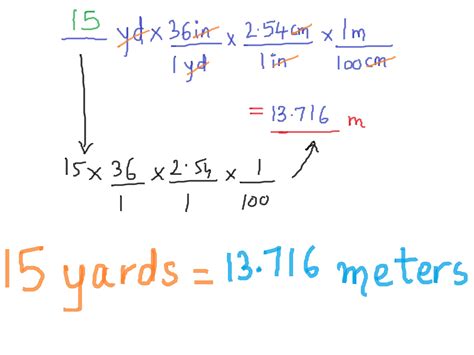 15 yd × 36in/1yd × 2.54cm/1in × 1m/100cm
= 13.716 m
15 × 36/1 × 2.54/1 × 1/100
15 yards = 13.716 meters